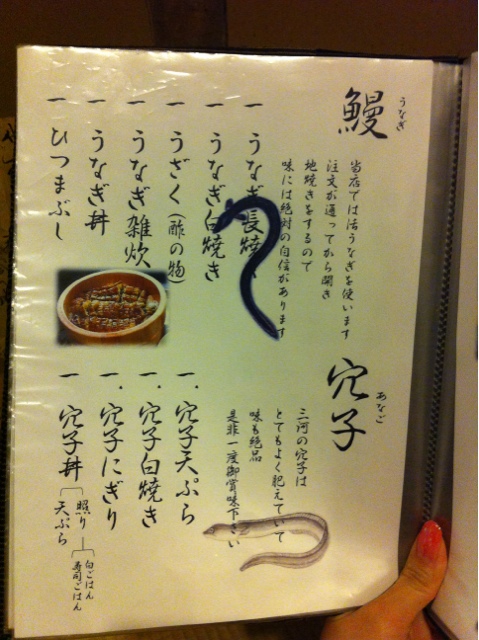 鰻
うなぎ
当店では活うなぎを使います
注文が通ってから開き
地焼きをするので
味には絶対の自信があります
一 うなぎ長焼
一 うなぎ白焼き
一 うざく(酢の物)
一 うなぎ雑炊
一 うなぎ丼
一 ひつまぶし
穴子
あなご
三河の穴子は
とてもよく肥えていて
味も絶品
是非一度御賞味下さい
一.穴子天ぷら
一.穴子白焼き
一.穴子にぎり
一 穴子丼
照り
天ぷら
白ごはん
寿司ごはん